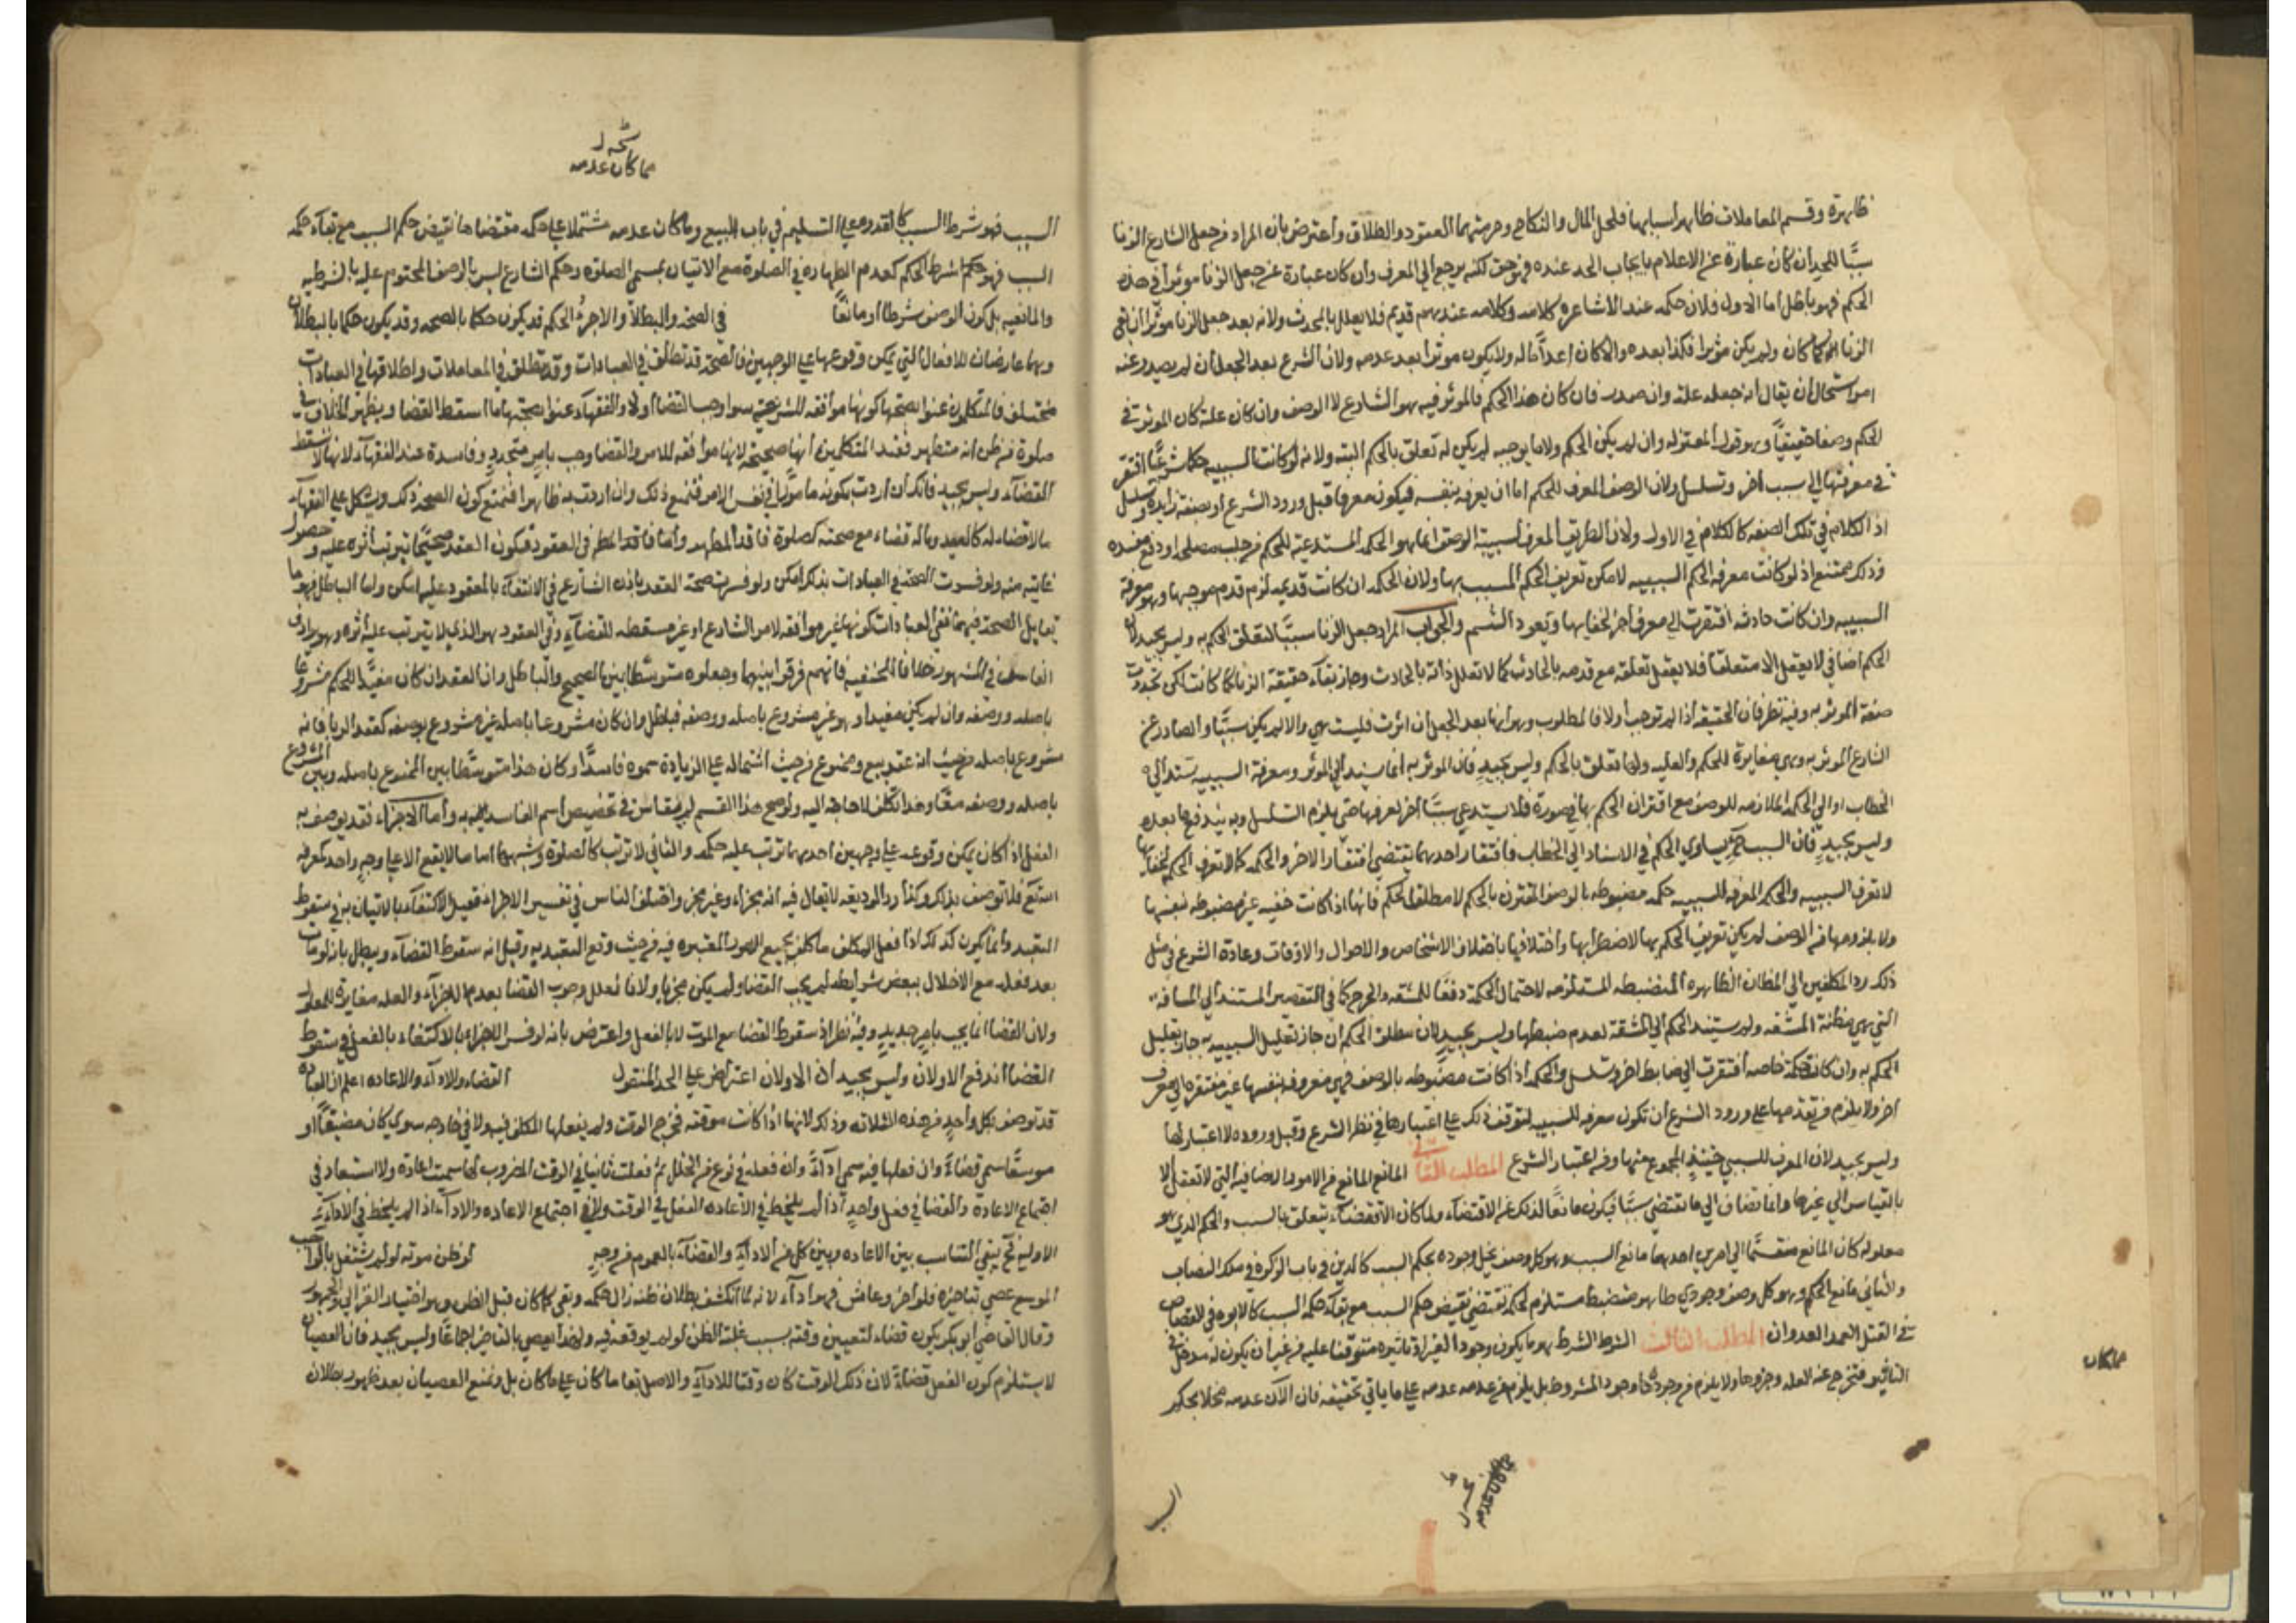 ظاهرة وقسم المعاملات ظاهر أسبابها فلحل المال والنكاح وحرمتهما العقود والطلاق وأعترض بان المراد من جعل الشارع الزنا
سببًا للحد ان كان عبارة عن الاعلام بايجاب الحد عنده فهو حق لكنه يرجع الى المعرف وان كان عبارة عن جعل الزنا موثرا في هذه
الحكم فهو باطل اما الاول فلان حكمه عند الاشاعره كلامه وكلامه عندهم قديم فلا يعلل بالمحدث ولانه بعد جعل الزنا موثرا ان بقى
الزنا كما كان ولم يكن موثرا فكذا بعده والا كان اعدامًا له ولا يكون موثرا بعد عدمه ولان الشرع بعد الجعل ان لم يصدر عنه
امر استحال أن يقال انه جعله علة وان صدر فان كان هذا الحكم فالموثر فيه هو الشارع لا الوصف وان كان علة كان الموثر في
الحكم وصفا حقيقيًا وهو قول المعتزله وان لم يكن الحكم ولا ما يوجبه لم يكن له تعلق بالحكم البته ولانه لو كانت السببيه حكما شرعيًا افتقر
في معرفتها الى سبب أخر وتسلسل ولان الوصف المعرف للحكم اما ان يعرفه بنفسه فيكون معرفا قبل ورود الشرع او بصفة زايدة وتسلسل
اذ الكلام في تلك الصفه كالكلام في الاول ولان الطريق المعرف لسببية الوصف انما هو الحكمه المستدعية للحكم من جلب مصلحه او دفع مفسده
وذلك ممتنع اذ لو كانت معرفه لحكم السببيه لامكن تعريف الحكم المسبب بها ولان الحكمه ان كانت قديمه لزم قدم موجبها وهو معرفة
السببيه وان كانت حادثه افتقرت الى معرف أخر لخفايها ويعود التقسيم والجواب المراد جعل الزنا سببًا لتعلق الحكم به وليس بجيد لان
الحكم اضافي لا يعقل الا متعلقا فلا يعقل تعلقه مع قدمه بالحادث كما لا تعلل ذاته بالحادث وجاز بقاء حقيقة الزنا كما كانت لكن تجددت
صفة الموثر به وفيه نظر فان الحقيقه اذا لم توجب أولا فالمطلوب وهو أنها بعد الجعل ان اثرت فليست هي والا لم يكن سببًا والصادر عن
الشارع الموثر به وهي مغايرة للحكم والعليه ولها تعلق بالحكم وليس بجيد فان الموثر به انما يستند الى الموثر ومعرفة السببيه يستند الى
الخطاب او الى الحكمة الملازمه للوصف مع اقتران الحكم بها في صورة فلا يستدعي سببًا أخر يعرفها حتى يلزم التسلسل وبه يندفع ما بعده
وليس بجيد فان السبب حكم يساوي الحكم في الاستناد الى الخطاب فافتقار احدهما يقتضي افتقار الاخر والحكمه كما لا تعرف الحكم لخفائها
لا تعرف السببيه والحكمه المعرفه للسببيه حكمه مضبوطه بالوصف المقترن بالحكم لا مطلقا لحكم فانها اذا كانت خفيه غير مضبوطه بنفسها
ولا بملزومها من الوصف لم يكن تعريف الحكم بها لاضطرابها واختلافها باختلاف الاشخاص والاحوال والاوقات وعادة الشرع في مثل
ذلك رد المكلفين الى المظان الظاهره المنضبطه المستلزمه لاحتمال الحكمة دفعًا للمشقه والحرج كما في التقصير المستند الى المسافه
التي هي مظنة المشقه ولم يستند الحكم الى المشقة لعدم ضبطها وليس بجيد لان مطلق الحكم ان جاز تعليل السببيه به جاز تعليل
الحكم به وان كانت حكمة خاصه أفتقرت الى ضابط اخر وتسلسل والحكمه اذا كانت مضبوطه بالوصف فهي معروفه بنفسها غير مفتقره الى معرف
اخر ولا يلزم من تقدمها على ورود الشرع أن تكون معرفه للسببيه لتوقف ذلك على اعتبارها في نظر الشرع وقبل وروده لا اعتبار لها
وليس بجيد لان المعرف للسببي حينئذٍ المجموع منها ومن اعتبار الشرع المطلب الثاني في المانع المانع من الامور الاضافيه التي لا تعقل الا
بالقياس الى غيرها وانما تضاف الى ما يقتضي سببًا فيكون مانعًا لذلك عن الاقتضاء ولما كان الاقتضاء يتعلق بالسبب والحكم الذي هو
معلوله كان المانع منقسمًا الى امرين احدهما مانع السبب وهو كل وصف يخل وجوده بحكم السبب كالدين في باب الزكوة في ملك النصاب
والثاني مانع الحكم وهو كل وصف وجودي ظاهر منضبط مستلزم لحكمه تقتضي نقيض حكم السبب مع بقاء حكمة السبب كالابوه في القصاص
في القتل العمد العدوان المطلب الثالث الشرط الشرط هو ما يكون وجود الغير او تاثيره متوقفا عليه من غير أن يكون له مدخل في
التاثير فتخرج عنه العله وجزوها ولا يلزم من وجوده وجود المشروط بل يلزم من عدمه عدمه على ما ياتي تحقيقه فان كان عدمه مخلا بحكم
مما كان
السبب
مما كان عدمه
السبب فهو شرط السبب كالقدره على التسليم في باب البيع وما كان عدمه مشتملا على حكمه مقتضاها نقيض حكم السبب مع بقاء حكمة
السبب فهو شرط الحكم كعدم الطهاره في الصلوة مع الاتيان بمسمى الصلوه وحكم الشارع ليس بالوصف المحتوم عليه بالشرطيه
والمانعيه بل كون الوصف شرطا أو مانعًا في الصحه والبطلان والاجزء الحكم قد يكون حكما بالصحه وقد يكون حكما بالبطلان
وهما عارضان للافعال التي يمكن وقوعها على الوجهين فالصحه قد تطلق في العبادات وقد تطلق في المعاملات واطلاقها في العبادات
مختلف فالمتكلمون عنوا بصحتها كونها موافقه للشريعه سوا وجب القضا أولا والفقهاء عنوا بصحتها ما اسقط القضا ويظهر الخلاف في
صلوة من ظن انه متطهر فعند المتكلمين أنها صحيحه لانها موافقه للامر والقضا وجب بامرٍ متجددٍ وفاسدة عند الفقهاء لانها لا تسقط
القضاء وليس بجيد فانك أن اردت بكونه مامورًا في نفس الامر فنمنع ذلك وان اردت به ظاهرا فنمنع كون الصحه ذلك ويشكل على الفقهاء
بالاقضاء له كالعيد وماله قضاء مع صحته كصلوة فاقد المطهر وأما في العقود فكون العقد صحيحًا ترتب أثره عليه وحصول
غايته منه ولو فسرت الصحه في العبادات بذلك امكن ولو فسرت صحة العقد باذن الشارع في الانتفاع بالمعقود عليه امكن واما الباطل فهو ما
يقابل الصحه فيهما ففي العبادات كونها غير موافقه لامر الشارع او غير مسقطه للقضاء وفي العقود هو الذي لا يترتب عليه أثره وهو يرادف
الفاسد في المشهور خلافا للحنفيه فانهم فرقوا بينهما وجعلوه متوسطا بين الصحيح والباطل وان العقد ان كان مفيدًا للحكم مشروعًا
باصله ووصفه وان لم يكن مفيدا وهو غير مشروع باصله ووصفه فباطل وان كان مشروعا باصله غير مشروع بوصفه كعقد الربا فانه
مشروع باصله من حيث انه عقد بيع وممنوع من حيث أشتماله على الزيادة سموه فاسدًا وكان هذا متوسطًا بين الممنوع باصله وبين المشروع
باصله ووصفه معًا وهذا تكلف لا حاجة اليه ولو صح هذا القسم لم يقاس في تخصيص أسم الفاسد به وأما الاجزاء فقد يوصف به
الفعل اذا كان يمكن وقوعه على وجهين احدهما ترتب عليه حكمه والثاني لا ترتب كالصلوة وشبهها اما ما لا يقع الا على وجهٍ واحد كمعرفه
الله تع فلا توصف بذلك وكذا رد الوديعه لا يقال فيه انه مجزاء وغير مجز واختلف الناس في تفسير الاجزاء فقيل الاكتفاء بالاتيان به في سقوط
التعبد وأنما يكون كذلك اذا فعل المكلف ما كلف بجميع الامور المعتبره فيه من حيث وقع التعبد به وقيل انه سقوط القضاء ويبطل بانه لو مات
بعد فعله مع الاخلال ببعض شرايطه لم يجب القضا ولم يكن مجزيا ولانا نعلل وجوب القضا بعدم الاجزاء والعله مغايرة للمعلول
ولان القضا انما يجب بامرٍ جديدٍ وفيه نظر اذ سقوط القضا مع الموت لا بالفعل واعترض بانه لو فسر الاجزاء بالاكتفاء بالفعل في سقوط
القضا أندفع الاولان وليس بجيد أن الاولان اعتراض على الحد المنقول القضاء والاداء والاعاده اعلم ان العباده
قد توصف بكل واحدٍ من هذه الثلاثه وذلك لانها اذا كانت موقته فخرج الوقت ولم يفعلها المكلف فيه ولا في خارجه سوى كان مضيقًا او
موسعًا سمى قضاءً وان فعلها فيه سمى اداءً وان فعله في نوع من الخلل ثم فعلت ثانيا في الوقت المضروب لها سميت اعادة ولا استبعاد في
اجتماع الاعادة والقضا في فعل واحدٍ اذا لم يلحظ في الاعاده الفعل في الوقت ولا في اجتماع الاعاده والاداء اذا لم يلحظ في الاداء
الاوليه فح يبقى التناسب بين الاعاده وبين كل من الاداء والقضاء بالعموم من وجهٍ لو ظن موته لو لم يشتغل بالواجب
الموسع عصى بتاخيره فلو أخر وعاش فهو أداء لانه لما أنكشف بطلان ظنه زال حكمه وبقى كما كان قبل الظن وهو اختيار الغزالي والجمهور
وقال القاضي أبو بكر يكون قضاء لتعيين وقته بسبب غلبة الظن لو لم يوقعه فيه ولهذا يعصى بالتاخير اجماعًا وليس بجيد فان العصيان
لا يستلزم كون الفعل قضاءً لان ذلك الوقت كان وقتا للاداء والاصل بقا ما كان على ما كان بل ونمنع العصيان بعد ظهور بطلان